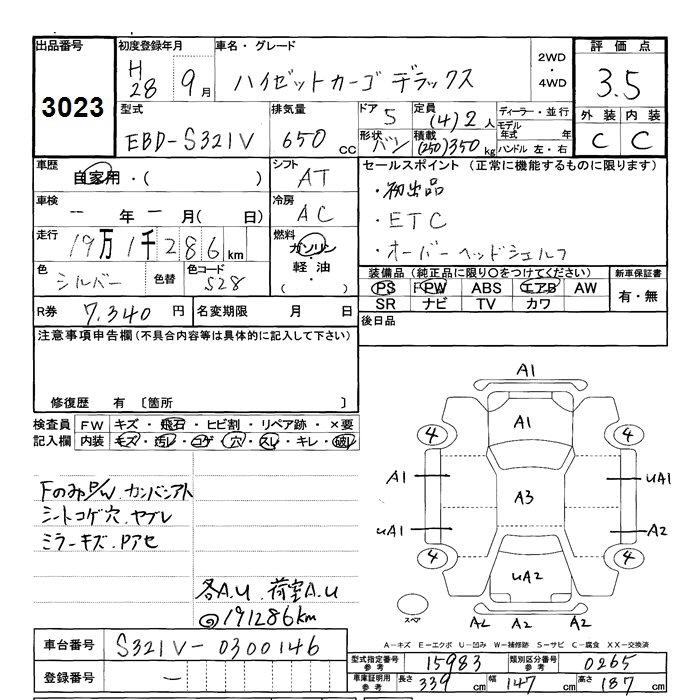 出品番号 初度登録年月 車名・グレード 2WD・4WD 評価点
3023 H28 9月 ハイゼットカーゴ デラックス 3.5
型式 排気量 ドア 5 定員 (4)2人 ディーラー・並行 外装 内装
EBD-S321V 650cc 形状 バン 積載 (250)350kg モデル年式 年 ハンドル 左・右 C C
車歴 シフト セールスポイント (正常に機能するものに限ります)
自家用・( ) AT ・初出品
車検 冷房 ・ETC
ー年ー月(日) AC ・オーバーヘッドシェルフ
走行 19万1千286km 燃料 ガソリン・軽油・( )
色 シルバー 色替 色コード S28
装備品(純正品に限り○をつけてください) 新車保証書
PS PW ABS エアB AW 有・無
SR ナビ TV カワ
R券 7,340円 名変期限 月 日 後日品
注意事項申告欄(不具合内容等は具体的に記入して下さい)
修復歴 有 〔箇所 〕
検査員 FW キズ・飛石・ヒビ割・リペア跡・×要
記入欄 内装 キズ・汚レ・コゲ・穴・スレ・キレ・破レ
FのみP/W.カンバンアト
シートコゲ穴.ヤブレ
ミラーキズ.Pアセ
各A.U.荷室A.U
@191286km
A1
A1
4 4
A1 A3 UA1
UA1 A2
4 UA2 4
スペア A2 A2 A2
A-キズ E-エクボ U-凹み W-補修跡 S-サビ C-腐食 XX-交換済
車台番号 S321V-0300146
登録番号 ー
型式指定番号 参考 15983 類別区分番号 参考 0265
車庫証明用 参考 長さ 339cm 幅 147cm 高さ 187cm